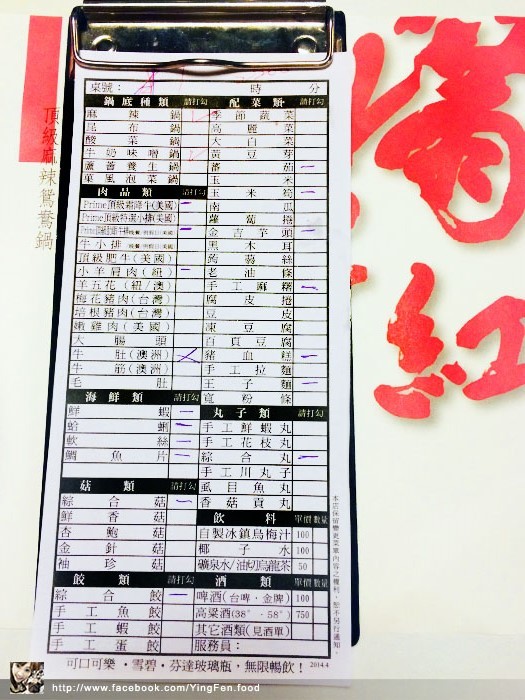 滿
紅
頂級麻辣鴛鴦鍋
桌號： 時 分
鍋底種類 請打勾
麻辣鍋
昆布鍋
酸菜鍋
牛奶味噌鍋
蘆薈養生鍋
菓風泡菜鍋
肉品類 請打勾
Prime頂級霜降牛(美國)
Prime頂級特選小排(美國)
牛小排
頂級肥牛(美國)
小羊肩肉(紐)
羊五花(紐/澳)
梅花豬肉(台灣)
培根豬肉(台灣)
嫩雞肉(美國)
大腸頭
牛肚(澳洲)
牛筋(澳洲)
毛肚
海鮮類 請打勾
鮮蝦
蛤蜊
軟絲
鯛魚片
菇類 請打勾
綜合菇
鮮香菇
杏鮑菇
金針菇
袖珍菇
餃類 請打勾
綜合餃
手工魚餃
手工蝦餃
手工蛋餃
配菜類 請打勾
季節蔬菜
高麗菜
大白菜
黃豆芽
蕃茄
玉米
玉米筍
南瓜
蘿蔔捲
金吉芋頭
黑木耳
蒟蒻絲
老油條
手工麻糬
腐皮捲
豆皮
凍豆腐
百頁豆腐
豬血糕
手工拉麵
王子麵
寬粉條
丸子類 請打勾
手工鮮蝦丸
手工花枝丸
綜合丸
手工川丸子
虱目魚丸
香菇貢丸
飲料 單價 數量
自製冰鎮烏梅汁 100
椰子水 100
礦泉水/油切烏龍茶 50
酒類 單價 數量
啤酒(台啤．金牌) 100
高粱酒(38°．58°) 750
其它酒類(見酒單)
服務員：
本店保留變更菜單內容之權利，恕不另行通知。
可口可樂．雪碧．芬達玻璃瓶，無限暢飲！ 2014.4
http://www.facebook.com/YingFen.food